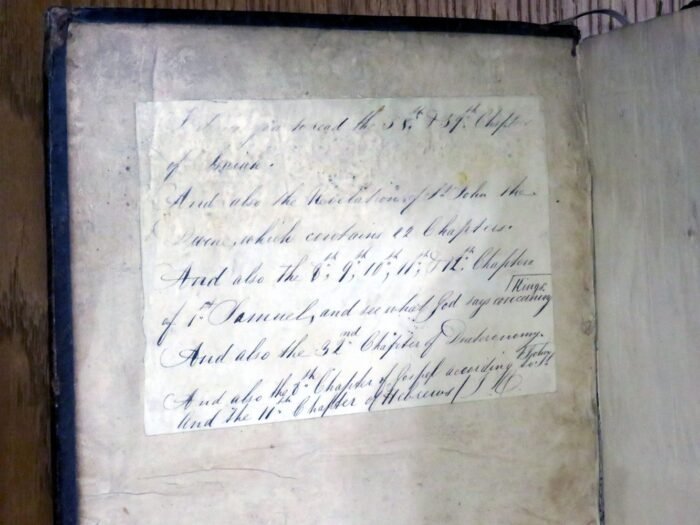 you to read the 58.th & 59.th Chapt
of Isaiah.
And also the Revelation of St John the
Devine, which contains 22 Chapters.
And also the 8.th, 9.th, 10.th, 11.th, & 12.th Chapters
of 1.st Samuel, and see what God says concerning Kings.
And also the 32.nd Chapter of Deuteronomy.
And also the 8.th Chapter of Gospel according to St John
And the 11.th Chapter of Hebrews